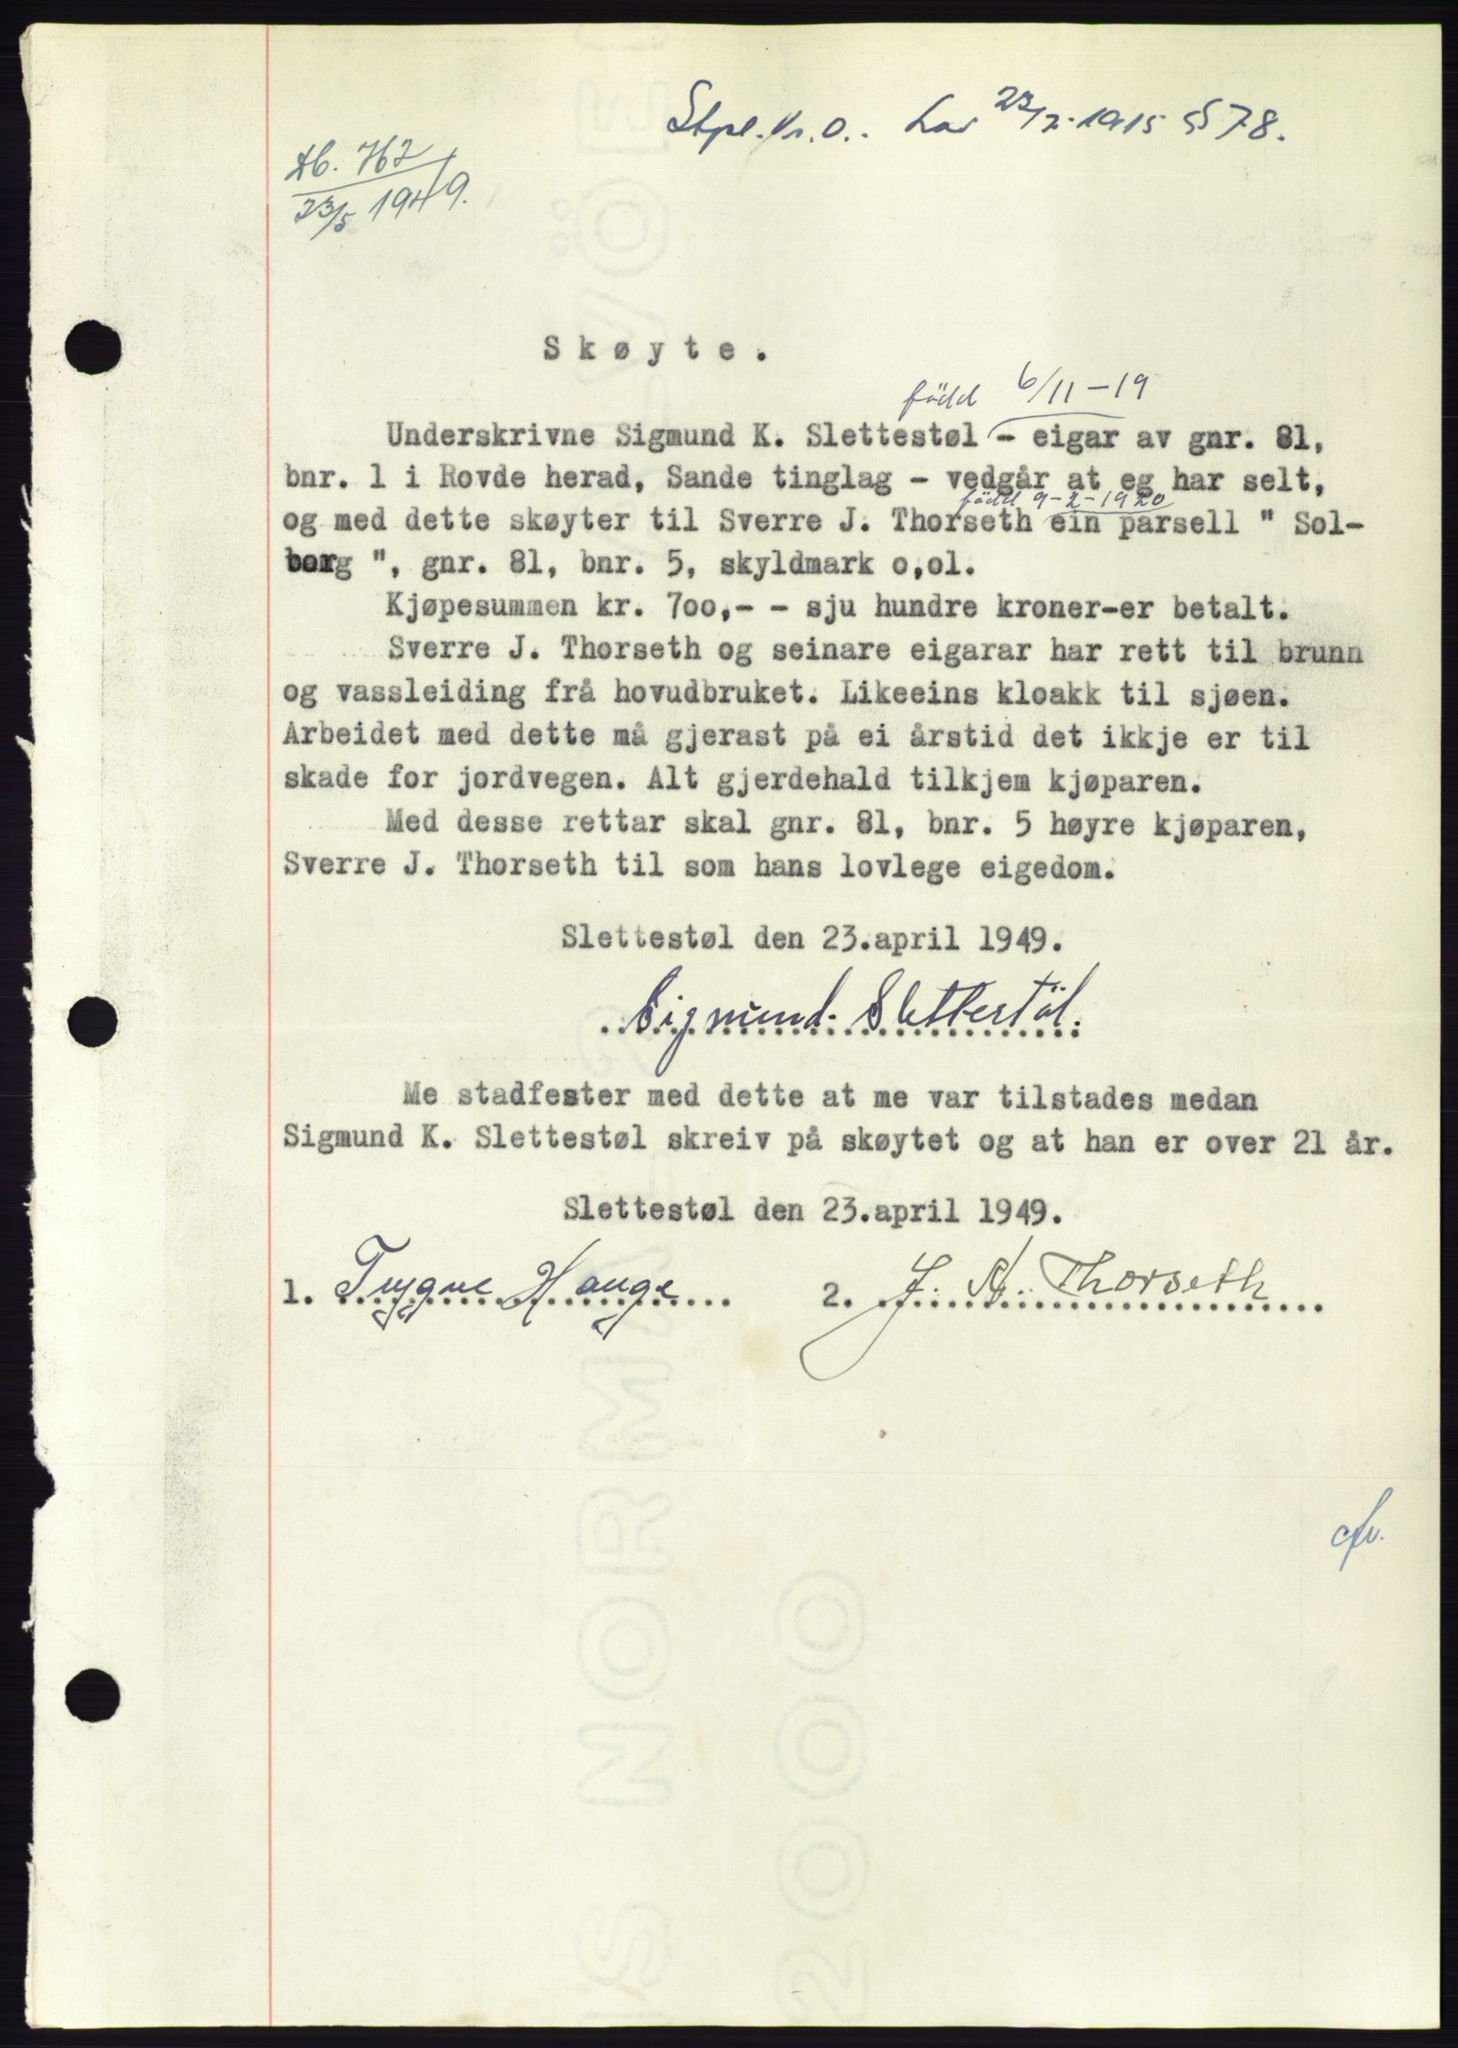 Stpl. kr. 0.. Lov 23/7-1915 § 78.
Db. 762
23/5 1949.
Skøyte.
født 6/11-19
Underskrivne Sigmund K. Slettestøl - eigar av gnr. 81,
bnr. 1 i Rovde herad, Sande tinglag - vedgår at eg har selt,
født 9-2-1920
og med dette skøyter til Sverre J. Thorseth ein parsell " Sol-
borg ", gnr. 81, bnr. 5, skyldmark o,ol.
Kjøpesummen kr. 7oo,- - sju hundre kroner-er betalt.
Sverre J. Thorseth og seinare eigarar har rett til brunn
og vassleiding frå hovudbruket. Likeeins kloakk til sjøen.
Arbeidet med dette må gjerast på ei årstid det ikkje er til
skade for jordvegen. Alt gjerdehald tilkjem kjøparen.
Med desse rettar skal gnr. 81, bnr. 5 høyre kjøparen,
Sverre J. Thorseth til som hans lovlege eigedom.
Slettestøl den 23.april 1949.
Sigmund Slettestøl.
Me stadfester med dette at me var tilstades medan
Sigmund K. Slettestøl skreiv på skøytet og at han er over 21 år.
Slettestøl den 23.april 1949.
1. Trygve Hauge 2. J. N. Thorseth